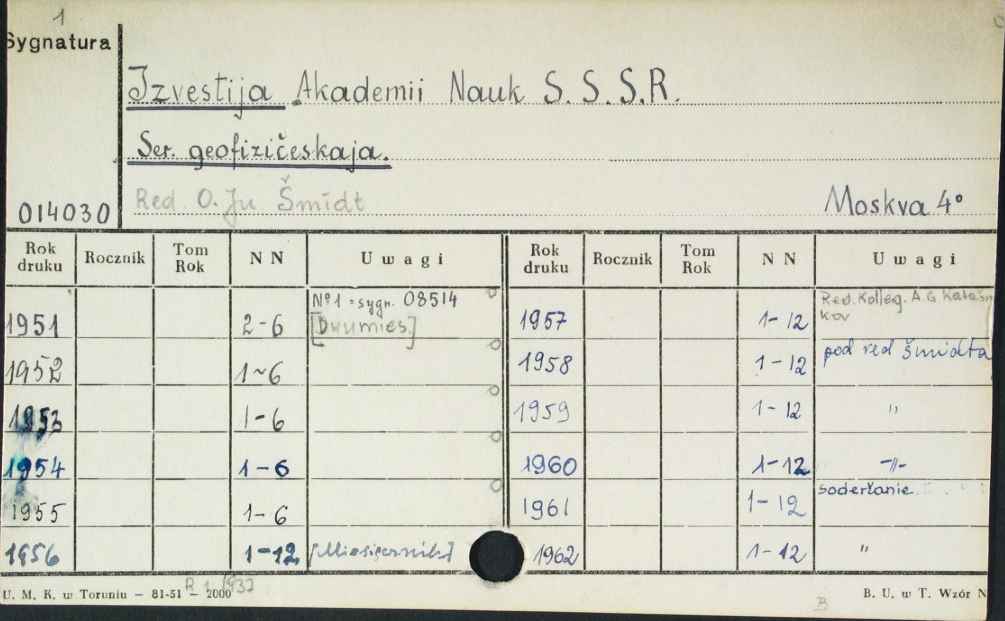 1
Sygnatura
Izvestija Akademii Nauk S.S.S.R.
Ser. geofizičeskaja.
Red. O. Ju Šmidt
014030 Moskva 4°
Rok druku Rocznik Tom Rok NN Uwagi Rok druku Rocznik Tom Rok NN Uwagi
1951 2-6 Nº1 = sygn. 08514 [Dwumies.] 1957 1-12 Red. Kolleg. A.G.
1952 1-6 1958 1-12 pod red Šmidta
1953 1-6 1959 1-12 "
1954 1-6 1960 1-12 -"-
1955 1-6 1961 1-12 soderłanie
1956 1-12 [Miesięcznik] 1962 1-12 "
U. M. K. w Toruniu — 81-51 — 2000
B. U. w T. Wzór N
B